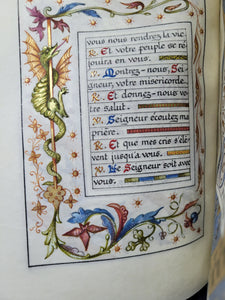 vous nous rendrez la vie.
℟. Et votre peuple se ré-
jouira en vous.
℣. Montrez-nous, Sei-
gneur, votre miséricorde.
℟. Et donnez-nous vo-
tre salut.
℣. Seigneur écoutez ma
prière.
℟. Et que mes cris s'élè-
vent jusqu'à vous.
℣. Le Seigneur soit avec
vous.